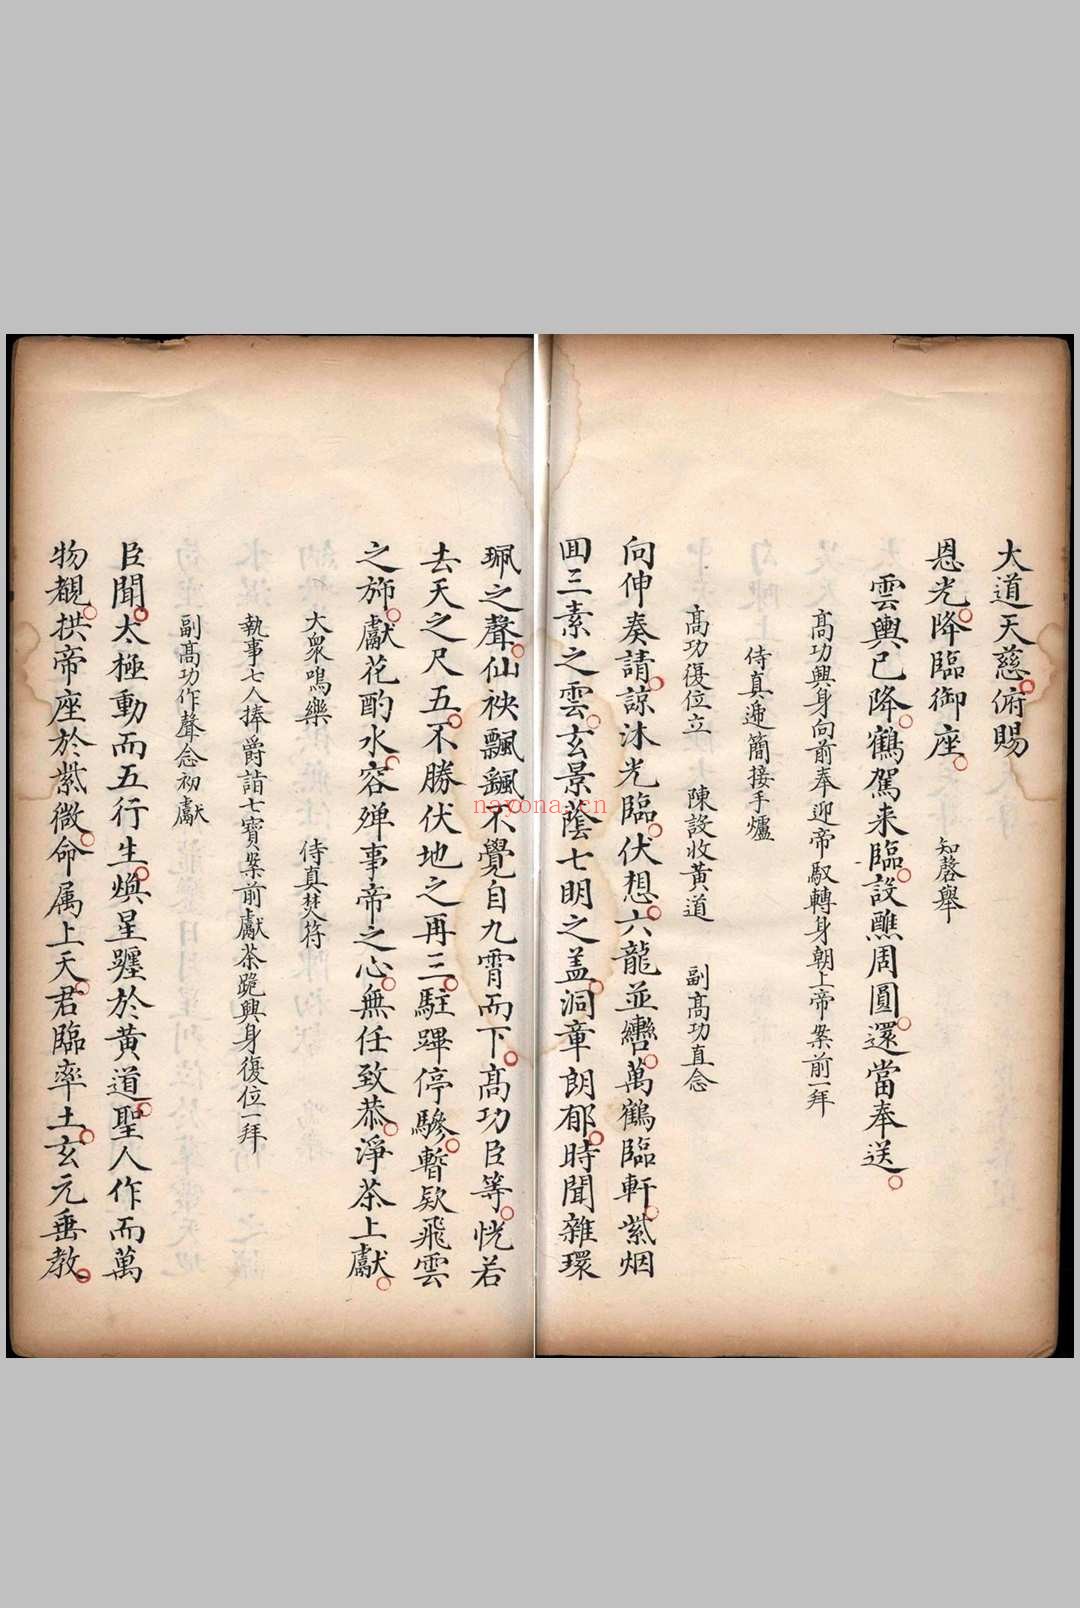 大道天慈俯賜
恩光降臨御座 知磬舉
雲輿已降鶴駕来臨設醮周圓還當奉送
髙功興身向前奉迎帝馭轉身朝上帝案前一拜
侍真遞簡接手爐
髙功復位立 陳設收黄道 副髙功直念
向伸奏請諒沐光臨伏想六龍並轡萬鶴臨軒紫烟
回三素之雲玄景蔭七明之盖洞章朗郁時聞雜環
珮之聲仙袂飄飖不覺自九霄而下髙功臣等恍若
去天之尺五不勝伏地之再三駐蹕停驂暫欵飛雲
之斾獻花酌水容殫事帝之心無任致恭淨茶上獻
大衆鳴樂 侍真焚符
執事七人捧爵詣七寳案前獻茶跪興身復位一拜
副髙功作聲念初獻
臣聞太極動而五行生煥星躔於黄道聖人作而萬
物覩拱帝座於紫微命属上天君臨率土玄元垂教
nayona.cn